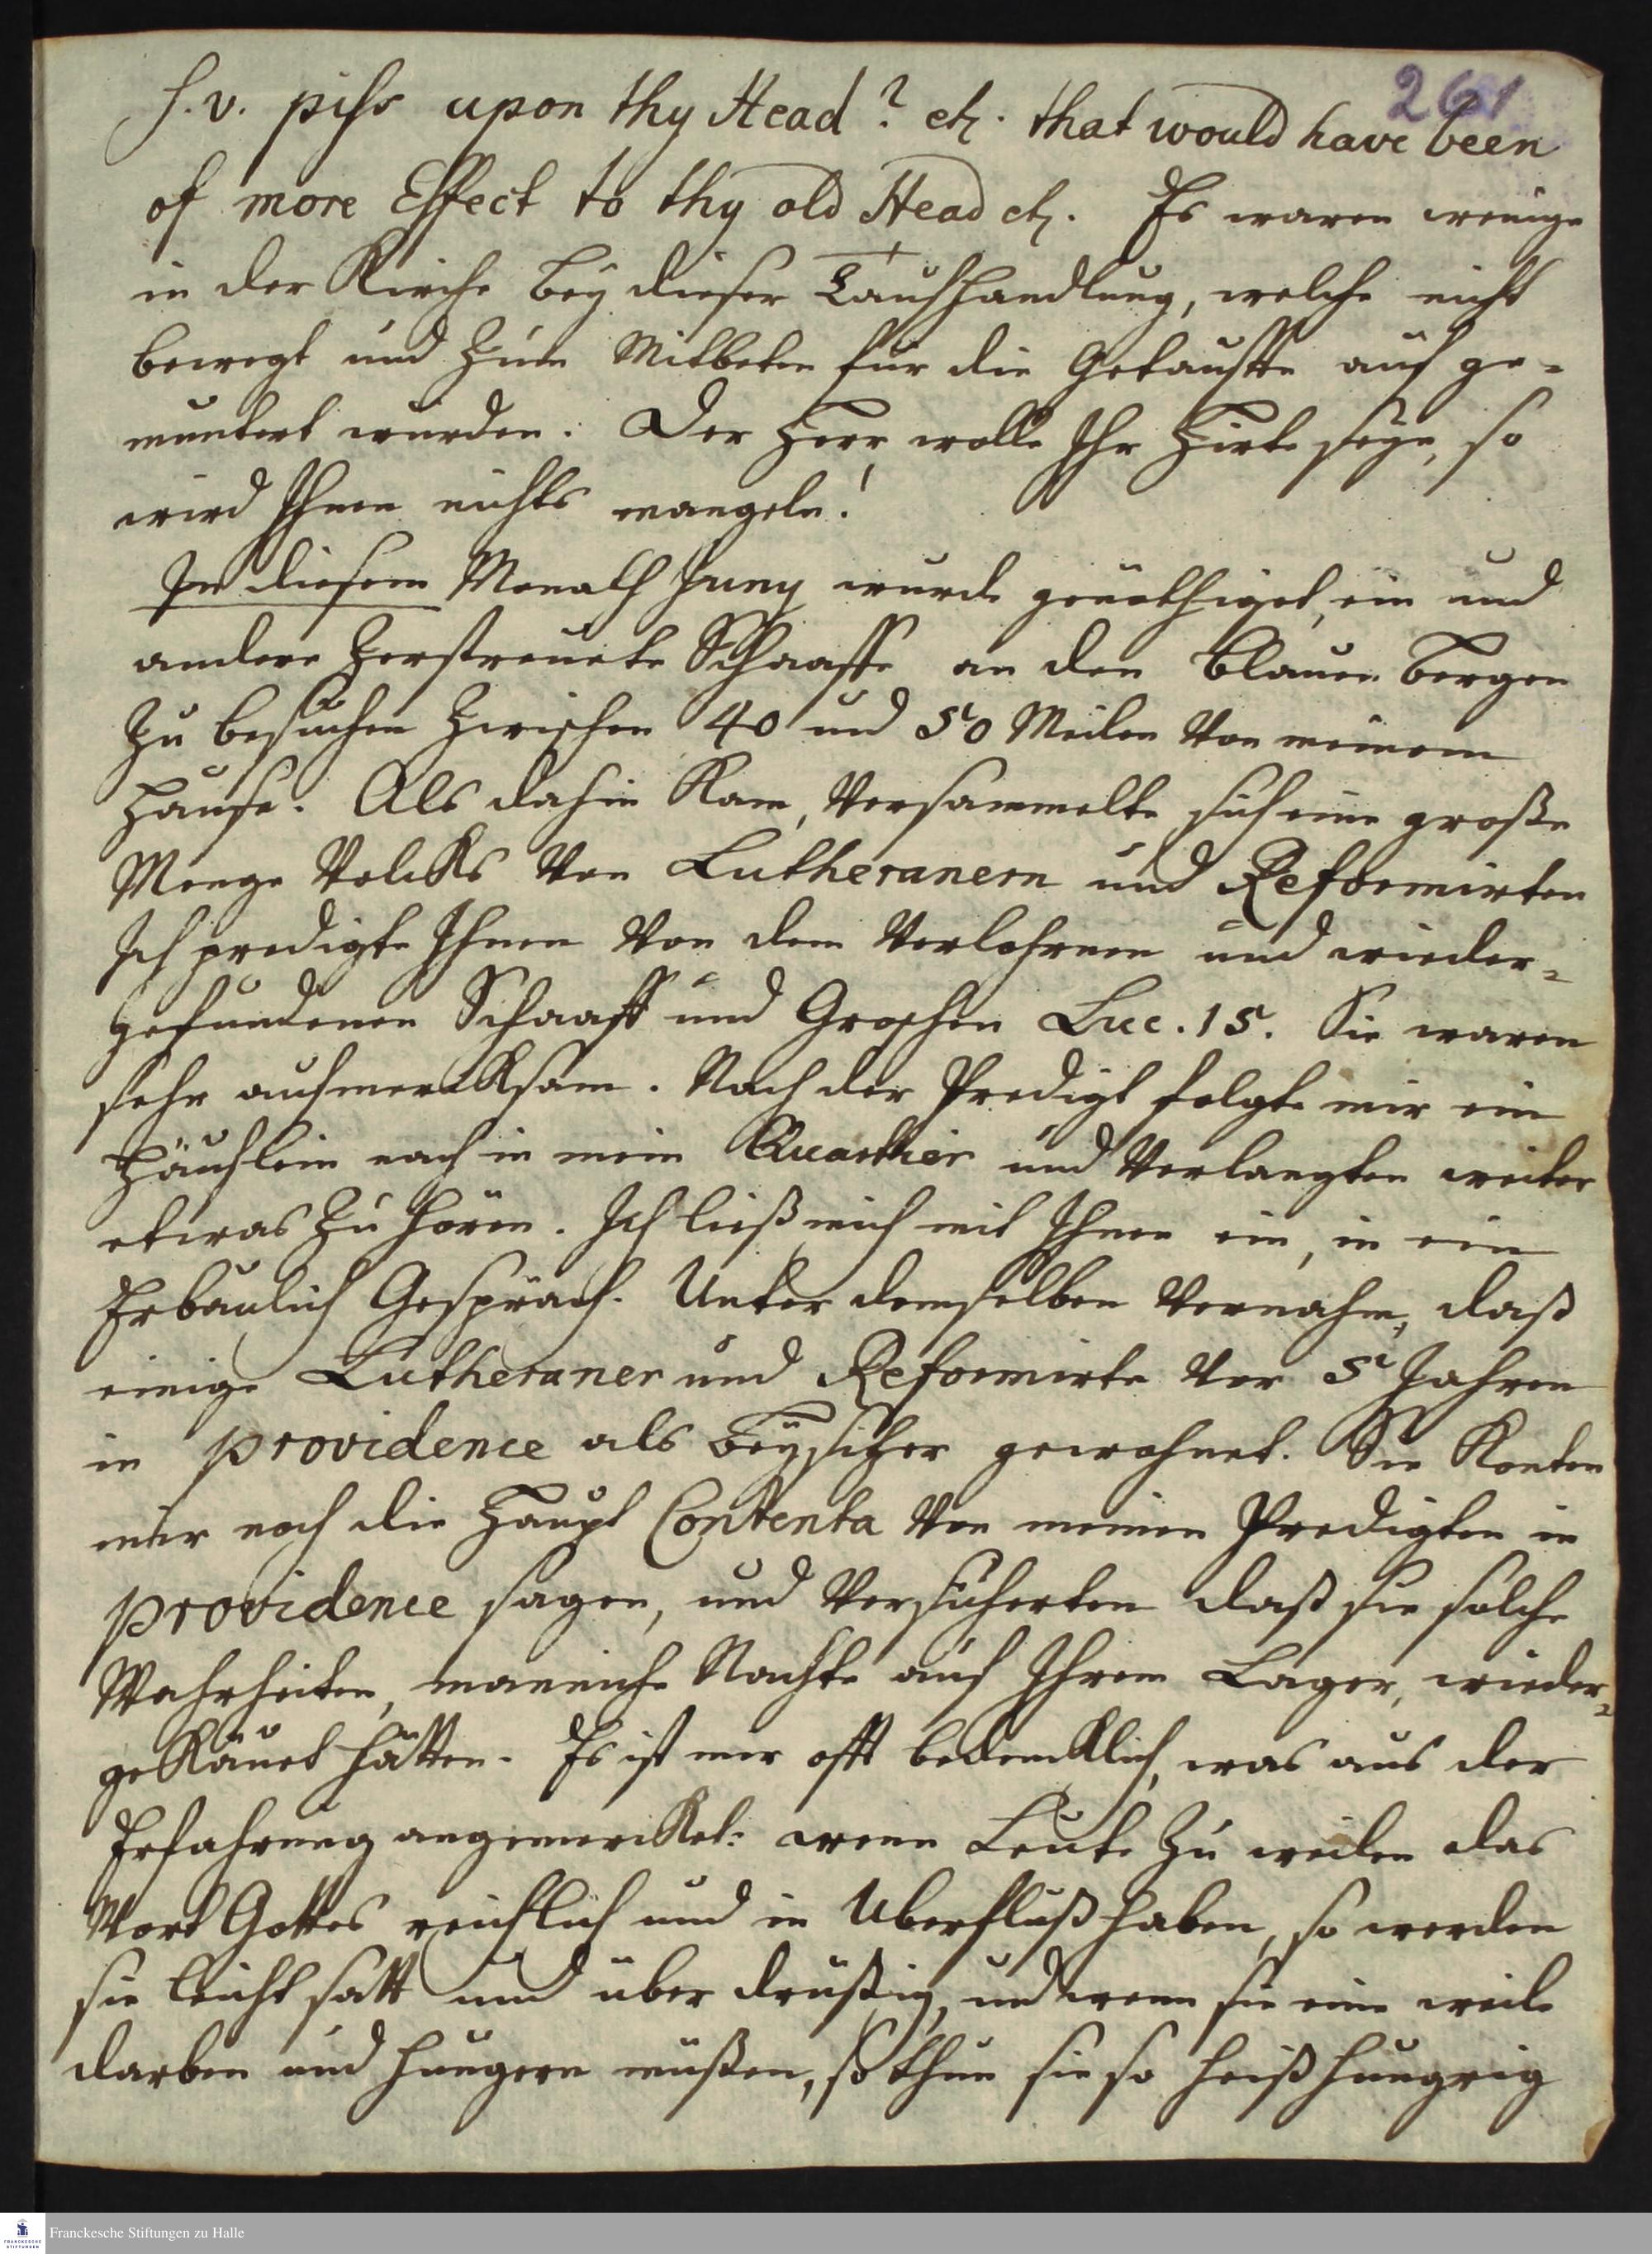 261
s. v. piss upon thy Head? etc. that would have been
of more Effect to thy old Head etc. Es waren wenige
in der Kirche bey dieser Taufhandlung, welche nicht
bewegt und zum Mitbeten für die Getauffte auf ge-
muntert wurden. Der Herr wolle Ihr Hirte seyn, so
wird Ihnen nichts mangeln!
In diesem Monath Juny wurde genöthiget, ein und
andere Zerstreuete Schaaffe an den blauen Bergen
zu besuchen zwischen 40 und 50 Meilen von meinem
Hause. Als dahin kam, versammelte sich eine große
Menge Volcks von Lutheranern und Reformirten
Ich predigte Ihnen von dem Verlohrnen und wieder-
gefundenen Schaaff und Groschen Luc. 15. Sie waren
sehr aufmercksam. Nach der Predigt folgte mir ein
Häuflein nach in mein Quarthier und verlangten weiter
etwas zu hören. Ich ließ mich mit Ihnen ein, in ein
Erbaulich Gespräch. Unter demselben vernahm, daß
einige Lutheraner und Reformirte vor 5 Jahren
in providence als Beysitzer gewohnet. Sie konten
mir noch die Haupt Contenta von meinen Predigten in
providence sagen, und versicherten daß sie solche
Wahrheiten, manniche Nachte auf Ihrem Lager, wieder-
gekäuet hätten. Es ist mir offt bedencklich, was aus der
Erfahrung angemercket: wenn Leute zu weilen das
Wort Gottes reichlich und in Uberfluß haben, so werden
sie leicht satt und über drüßig, und wenn sie eine weile
darben und hungern müßen, so thun sie so heißhungrig
Franckesche Stiftungen zu Halle
FRANCKESCHE
STIFTUNGEN